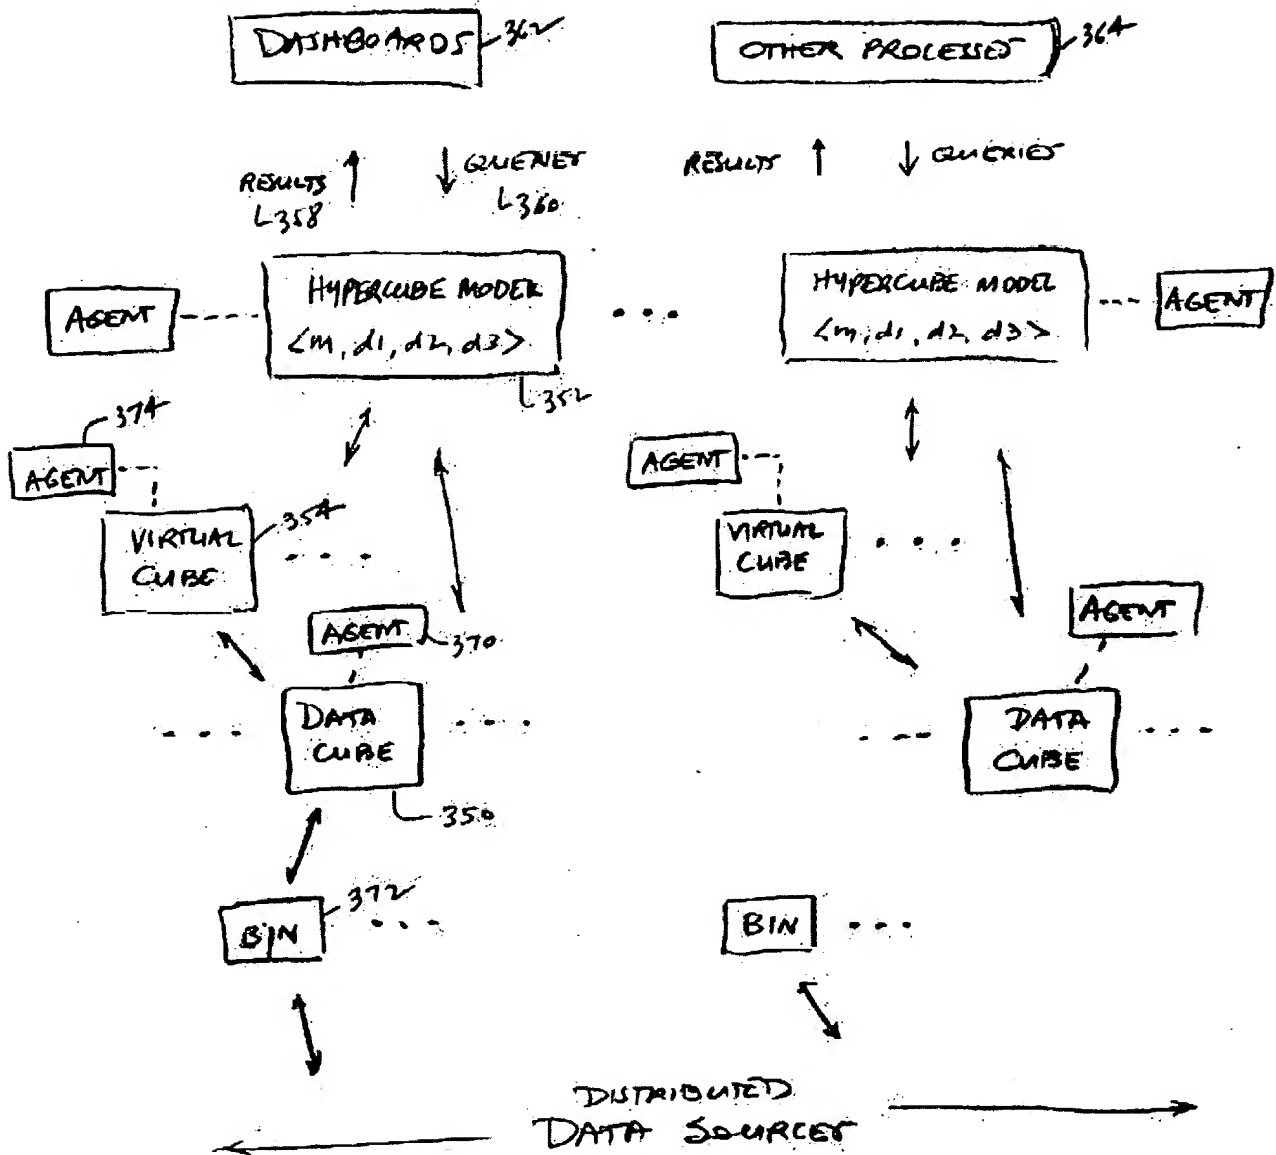 DASHBOARDS 362
OTHER PROCESSES 364
RESULTS
358
QUERIES
360
RESULTS
QUERIES
AGENT
HYPERCUBE MODEL
<m, d1, d2, d3>
352
. . .
HYPERCUBE MODEL
<m, d1, d2, d3>
AGENT
374
AGENT
VIRTUAL
CUBE
354
. . .
AGENT
VIRTUAL
CUBE
. . .
AGENT
370
DATA
CUBE
350
AGENT
DATA
CUBE
BIN
372
. . .
BIN
. . .
DISTRIBUTED
DATA SOURCES